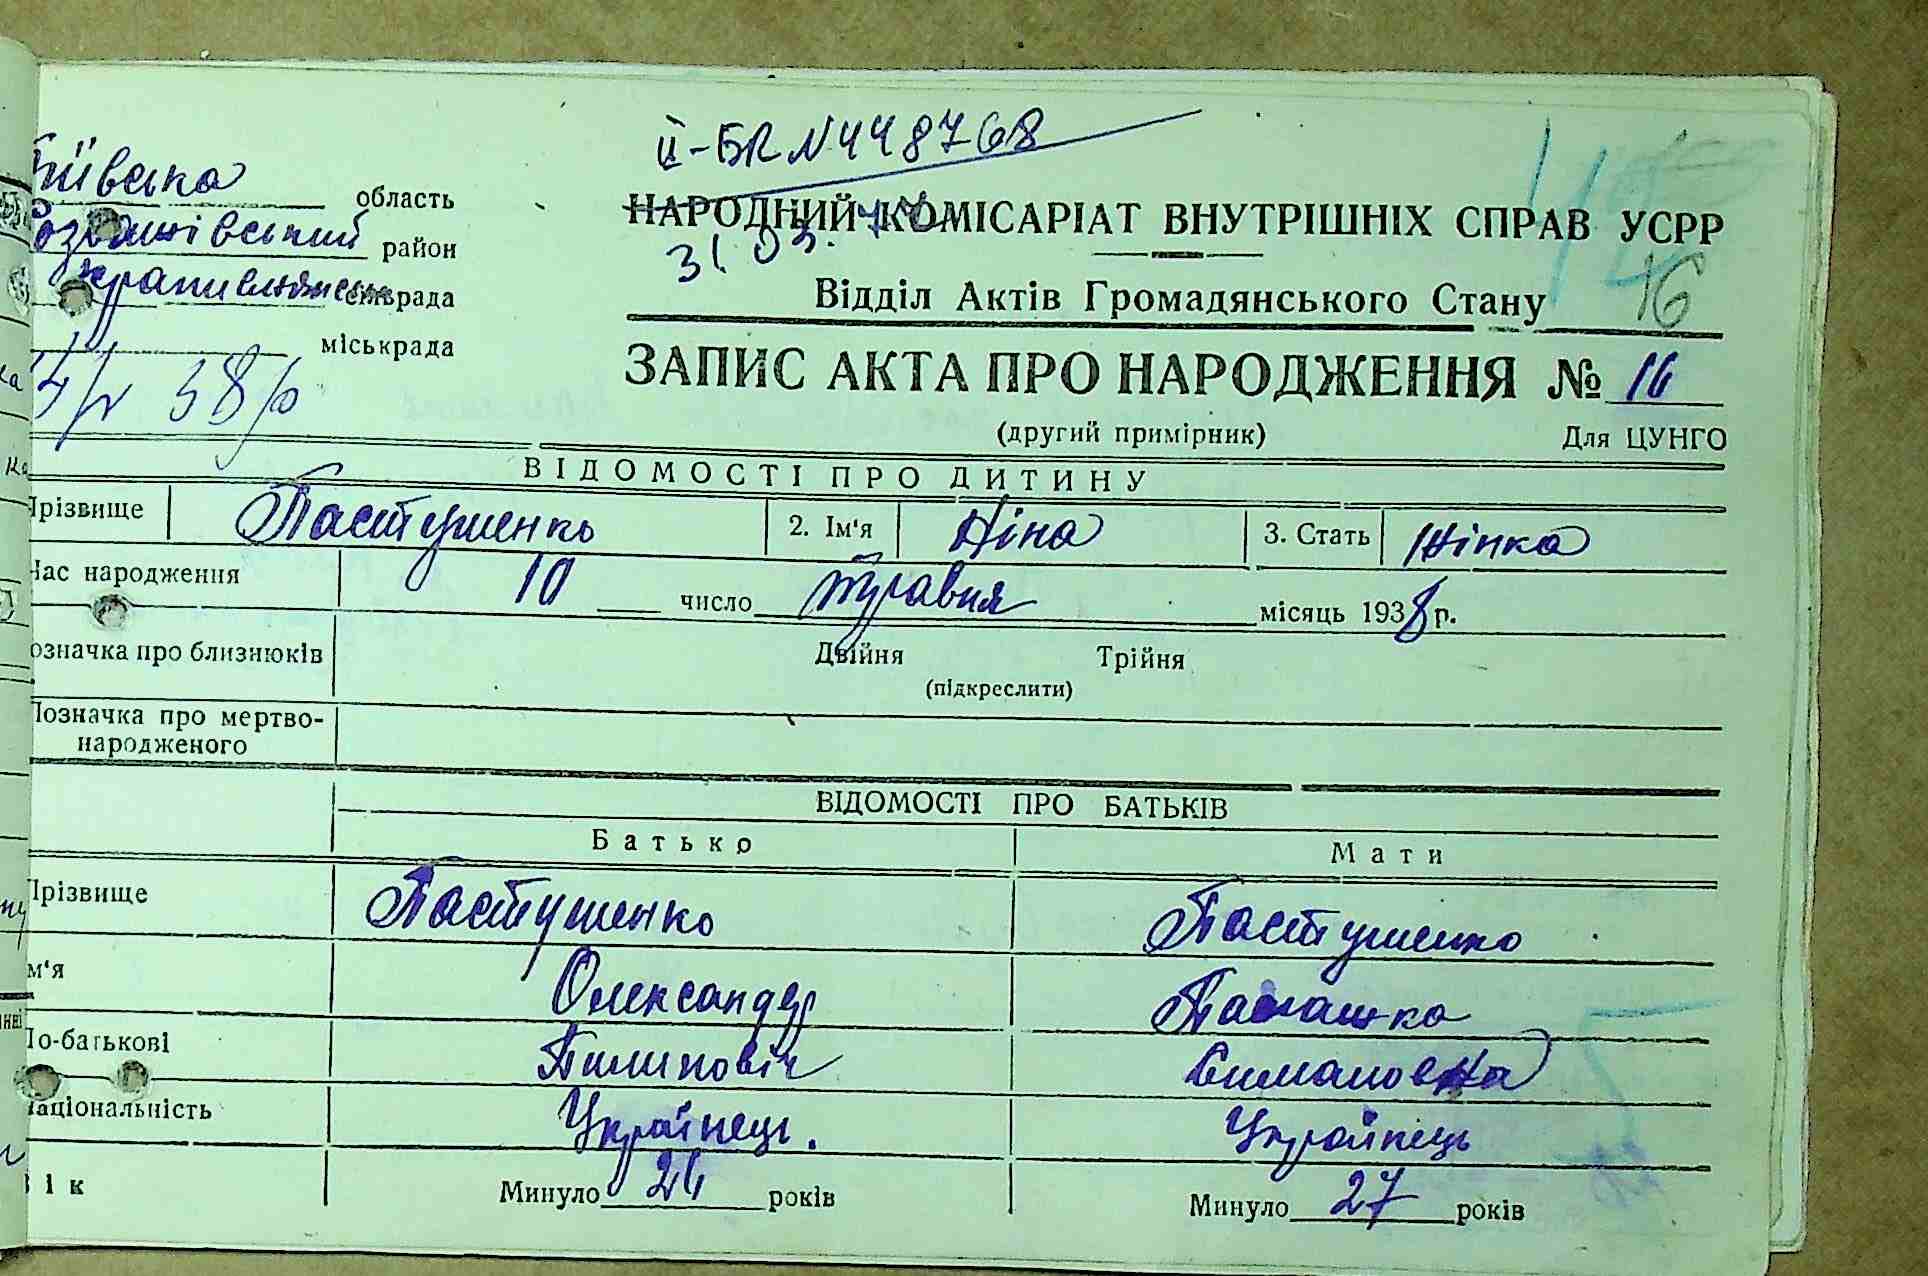 ІІ-БК N 448768
Київська область
район
сільрада
міськрада
НАРОДНИЙ КОМІСАРІАТ ВНУТРІШНІХ СПРАВ УСРР
31.03.
Відділ Актів Громадянського Стану 16
ЗАПИС АКТА ПРО НАРОДЖЕННЯ № 16
(другий примірник) Для ЦУНГО
ВІДОМОСТІ ПРО ДИТИНУ
Прізвище Пастушенко 2. Ім'я Ніна 3. Стать Жінка
Час народження 10 число травня місяць 1938 р.
Позначка про близнюків Двійня Трійня
(підкреслити)
Позначка про мертво-
народженого
ВІДОМОСТІ ПРО БАТЬКІВ
Батько Мати
Прізвище Пастушенко Пастушенко
Ім'я Олександр
По-батькові Пилиповіч Симановна
Національність Українець. Українець
Вік Минуло років Минуло 27 років